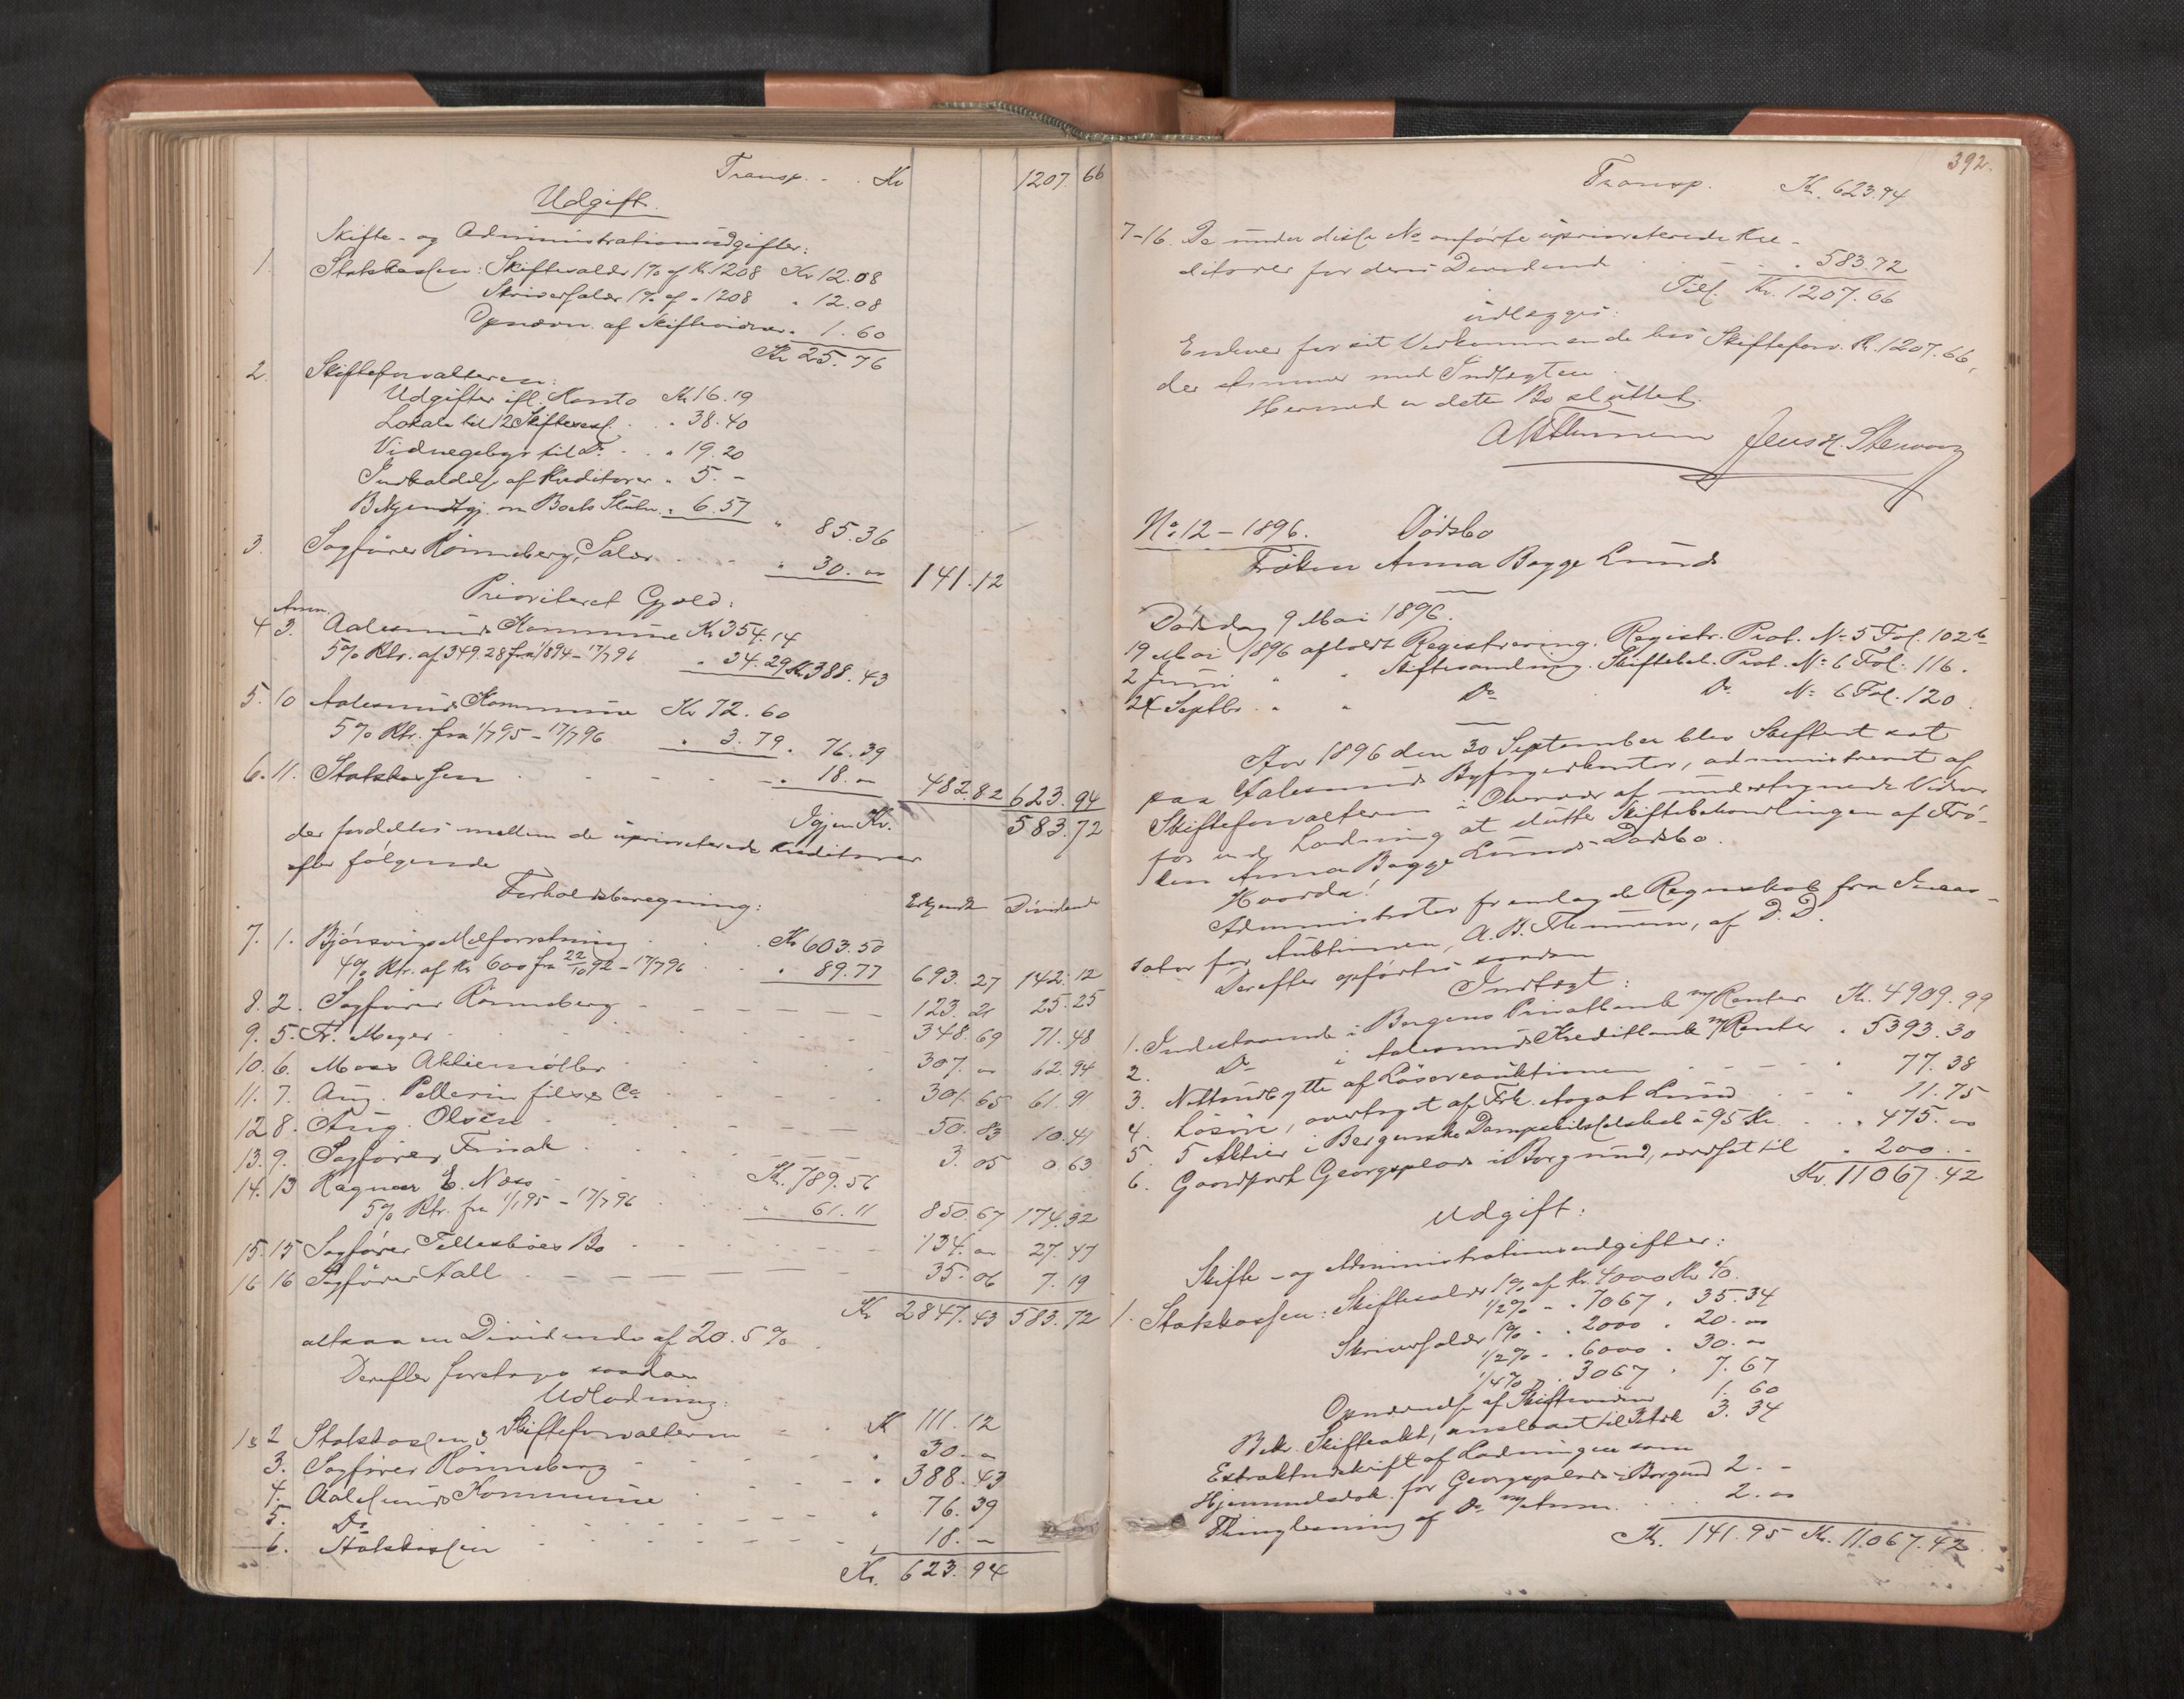 Transp. - . Kr 1207. 66
Udgift.
Skifte- og Administrationsudgifter:
1. Statskassen: Skiftesalær 1% af Kr. 1208 Kr 12.08
Skriversalær 1% af " 1208 " 12.08
Opnævn. af Skiftevidner " 1.60
Kr 25.76
2. Skifteforvalteren:
Udgifter ifl. Konto Kr 16.19
Lokale til 12 Skiftesaml. . . " 38.40
Vidnegebyr til Do . . " 19.20
Indkaldelse af Kreditorer " 5. -
Bekjendtgj. om Boets Slutn. " 6.57 " 85.36
3. Sagfører Rønneberg, Salær . . . " 30. " 141.12
Prioriteret Gjæld:
Anm.
4 3. Aalesunds Kommune Kr 354.14
5% Rtr. af 349.28 fra 1/8 94 - 17/7 96 " 34.29 Kr 388.43
5. 10 Aalesunds Kommune Kr 72.60
5% Rtr. fra 1/7 95 - 17/7 96 " 3.79 " 76.39
6. 11. Statskassen . - - - - " 18. " 482.82 623.94
Igjen Kr. 583.72
der fordeles mellem de uprioriterede Kreditorer
efter følgende
Forholdsberegning: Erkjendt Dividende
7. 1. Bjørsvigs Mølforretning . . . Kr 603.50
4% Rtr. af Kr 600 fra 22/10 92 - 17/7 96 . . " 89.77 693.27 142.12
8. 2. Sagfører Rønneberg - - - - - 123.21 25.25
9. 5. Fr. Meyer - - - - 348.69 71.48
10. 6. Moss Aktiemøller . . . 307. " 62.94
11. 7. Aug. Pellerin fils & Co - - - 301.65 61.91
12 8. Aug. Olsen - - - - 50.83 10.41
13. 9. Sagfører Finak . - - - 3.05 0.63
14. 13 Ragnar E. Næss - - Kr. 789.56
5% Rtr. fra 1/1 95 - 17/7 96 . . " 61.11 850.67 174.32
15. 15 Sagfører Tellesbøes Bo - - - 134. " 27.47
16 16 Sagfører Kall - - - - 35.06 7.19
Kr 2847.43 583.72
altsaa en Dividende af 20.5%.
Derefter foretages saadan
Udlodning:
1 & 2 Statskassen & Skifteforvalteren - . Kr 111.12
3. Sagfører Rønneberg - - - " 30. -
4. Aalesunds Kommune . . . " 388.43
5. Do - - - - " 76.39
6. Statskassen - - - - " 18. -
Kr. 623.94
392.
Transp. Kr. 623.94
7-16. De under disse No anførte uprioriterede Kre-
ditorer for deres Dividend . . - . 583.72
Till. Kr. 1207.66
udlægges:
Enhver for sit Vedkommende hos Skifteforv. Kr. 1207.66,
der stemmer med Indtægten.
Hermed er dette Bo sluttet.
A B Thunem Jens H.
No. 12 - 1896. Dødsbo
Frøken Anna Bagge Lund
Dødsdag 9 Mai 1896.
19 Mai 1896 afholdt Registrering. Registr. Prot. No 5 Fol. 102 b
2 Juni " " Skiftesamling. Skiftebeh. Prot. No 6 Fol. 116.
24 Septbr. " " Do . Do No 6 Fol. 120.
Aar 1896 den 30 September blev Skifteret sat
paa Aalesunds Byfogedkontor, administreret af
Skifteforvalteren i Overvær af undertegnede Vidner
for ved Lodning at slutte Skiftebehandlingen af Frø-
ken Anna Bagge Lunds Dødsbo.
Hvorda!
Administrator fremlagde Regnskab fra Incas-
sator for Auktionen, A. B. Thunem, af D. D.
Derefter opførtes saadan
Indtægt:
1. Indestaaende i Bergens Privatbank m/Renter Kr. 4909.99
2. Do i Aalesunds Kreditbank m/Renter " 5393.30
3. Nettoudbytte af Løsøreauktionen - - - 77.38
4. Løsøre, overtaget af Frk. Aagot Lund . - " 11.75
5. 5 Aktier i Bergenske Dampskibsselskab à 95 Kr . . " 475. "
6. Gaardpart Georgsplads i Borgund, værdsat til " 200. -
Kr. 11067.42
Udgift:
Skifte- og Administrationsudgifter:
1. Statskassen: Skiftesalær 1% af Kr. 4000 Kr 40.
1/2% - " 7067 " 35.34
Skriversalær 1% - " 2000 " 20. "
1/2% - " 6000 " 30. -
1/4% " " 3067 " 7.67
Opnævnelse af Skiftevidner 1.60
Bekr. Skifteakt, anslaaet til 3 Ark 3.34
Extraktudskrift af Lodningen som
Hjemmelsdok. for Georgsplads i Borgund 2. -
Thinglæsning af Do m/Anm. . . . 2. "
Kr. 141.95 Kr. 11.067.42